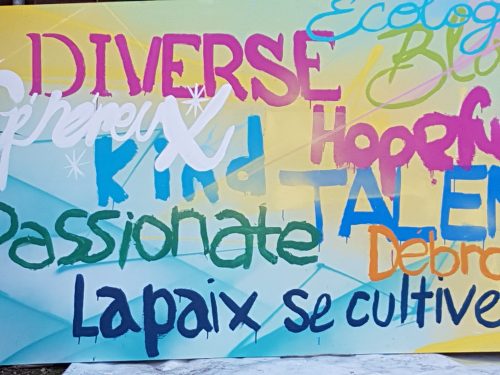 Ecolog
DIVERSE
Blu
Généreux
Hopefu
Kind
TALEN
Passionate
Debro
Lapaix se cultive